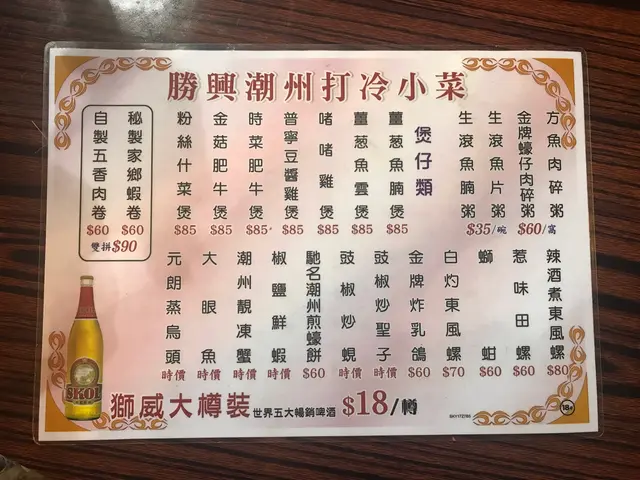 勝興潮州打冷小菜
方魚肉碎粥
金牌蠔仔肉碎粥
$60/窩
生滾魚片粥
生滾魚腩粥
$35/碗
煲仔類
薑葱魚腩煲 $85
薑葱魚雲煲 $85
啫啫雞煲 $85
普寧豆醬雞煲 $85
時菜肥牛煲 $85
金菇肥牛煲 $85
粉絲什菜煲 $85
秘製家鄉蝦卷 $60
自製五香肉卷 $60
雙拼$90
辣酒煮東風螺 $80
惹味田螺 $60
鰤蚶 $60
白灼東風螺 $70
金牌炸乳鴿 $60
豉椒炒聖子 時價
豉椒炒蜆 時價
馳名潮州煎蠔餅 $60
椒鹽鮮蝦 時價
潮州靚凍蟹 時價
大眼魚 時價
元朗蒸烏頭 時價
SKOL
獅威大樽裝 世界五大暢銷啤酒 $18/樽
18+